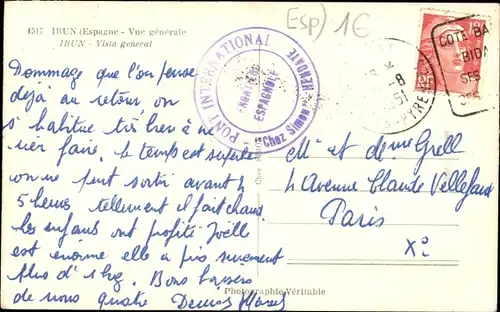 1517 IRUN (Espagne - Vue générale
IRUN - Vista general
Esp) 1€
PONT INTERNATIONAL
HENDAYE
ESPAGNOLE
Chez Simone
COTE BA
BIDA
SES
-8
51
PYRE
Dommage que l'on pense
déjà au retour on
s'habitue très bien à ne
rien faire. le temps est superbe
on ne peut sortir avant
5 heures tellement il fait chaud
les enfants ont profité Joëll
est énorme elle a pris surement
plus d'1 kg. Bons baisers
de nous quatre Denis
Mr et demi Grell
4 Avenue Claude Vellefaux
Paris
Xº
Photographie Véritable